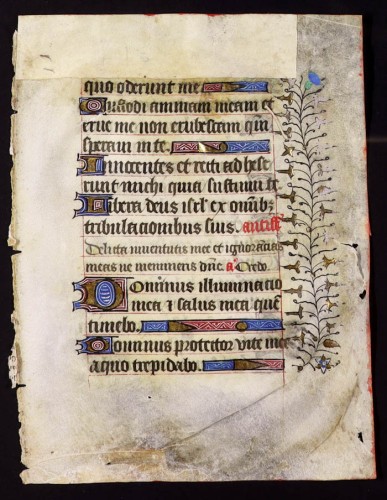 quo oderunt me
Custodi animam meam et
erue me non erubescam qm̄
speraui in te.
Innocentes et recti adhese
runt michi quia sustinui te
Libera deus isrl ex omib;
tribulacionibus suis. antiff
Delicta iuuentutis mee et ignorancias
meas ne memineris dn̄e. a Credo.
Dominus illuminacio
mea ⁊ salus mea quē
timebo.
Dominus protector vite mee
a quo trepidabo.